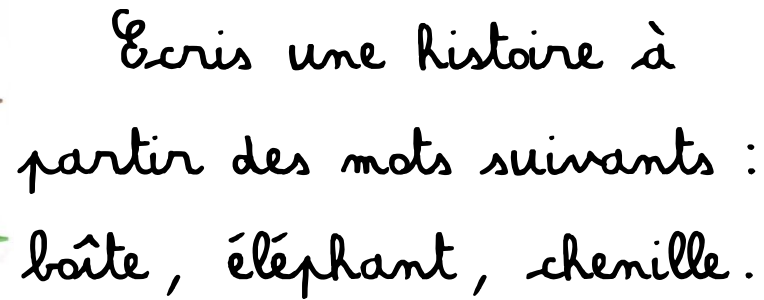 Ecris une histoire à
partir des mots suivants :
boîte, éléphant, chenille.